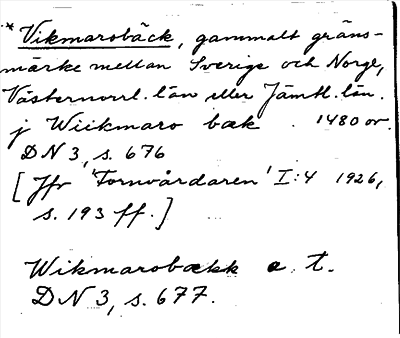 *Vikmarsbäck, gammalt gräns-
märke mellan Sverige och Norge,
Västernorrl. län eller Jämtl. län.
j Wiikmaro bæk . 1480 or.
DN 3, s. 676
[Jfr 'Fornvårdaren' I:4 1926,
s. 193 ff.]
Wikmarobækk a. t.
DN 3, s. 677.